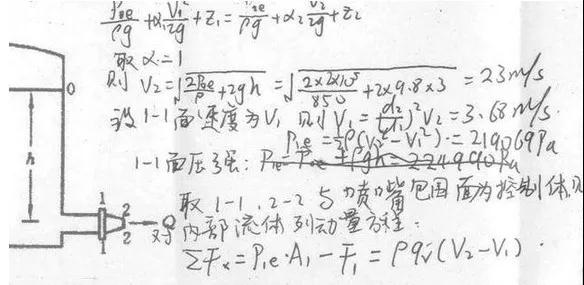 P₁e/ρg + α₁V₁²/2g + z₁ = P₂e/ρg + α₂V₂²/2g + z₂
取 α=1
则 V₂=√(2P₀e/ρ+2gh) = √(2×2×10⁵/850+2×9.8×3) = 23m/s
0
设1-1面速度为V₁ 则V₁=(d₂/d₁)²V₂=3.68m/s.
P₁e=½ρ(V₂²-V₁²)=219069Pa
1-1面压强:
h
取1-1,2-2与喷嘴包围面为控制体,
1 2
Q
对内部流体列动量方程:
1 2
ΣFx=P₁e·A₁-F₁=ρqv(V₂-V₁).